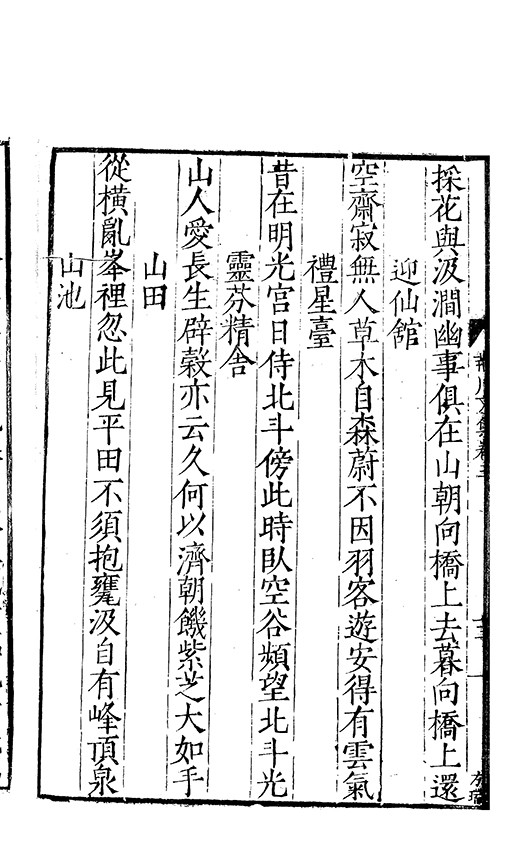 採花與汲澗幽事俱在山朝向橋上去暮向橋上還
迎仙館
空齋寂無人草木自森蔚不因羽客遊安得有雲氣
禮星臺
昔在明光宮日侍北斗傍此時臥空谷頻望北斗光
靈芬精舍
山人愛長生辟穀亦云久何以濟朝饑紫芝大如手
山田
從橫亂峯裡忽此見平田不須抱甕汲自有峰頂泉
山池